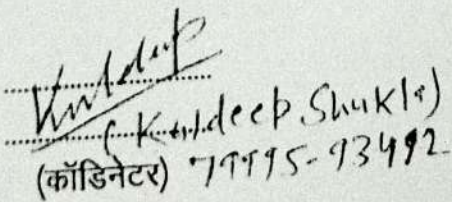 Kuldeep
(Kuldeep Shukla)
(कॉडिनेटर) 79995-93492